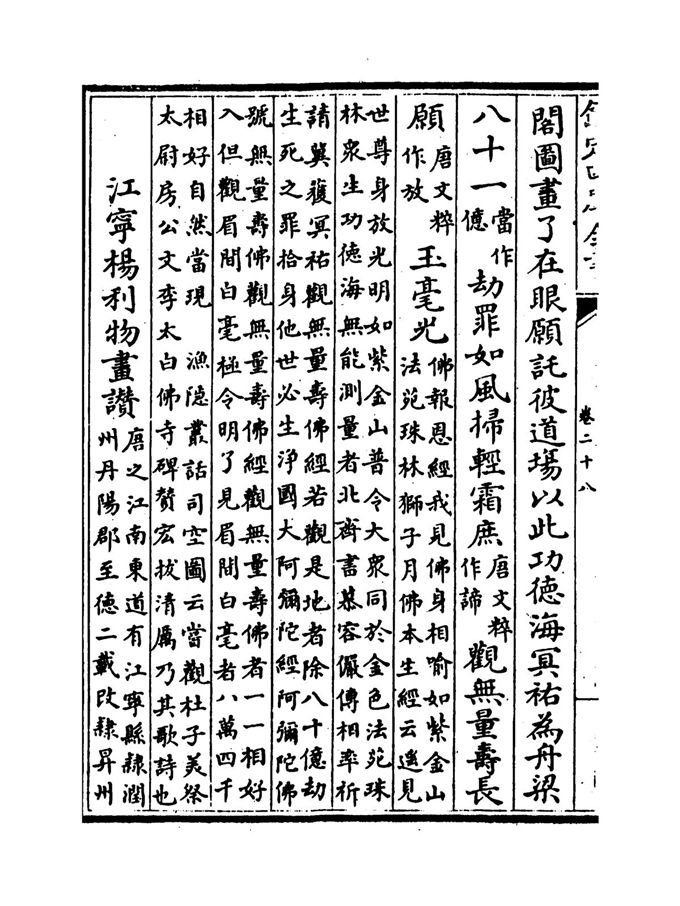 欽定四庫全書
卷二十八
閣圖畫了在眼願託彼道場以此功德海冥祐為舟梁
八十一當作億劫罪如風掃輕霜庶唐文粹作諦觀無量壽長
願唐文粹作放玉毫光佛報恩經我見佛身相喻如紫金山
法苑珠林獅子月佛本生經云遥見
世尊身放光明如紫金山普令大衆同於金色法苑珠
林衆生功德海無能測量者北齊書慕容儼傳相率祈
請冀獲冥祐觀無量壽佛經若觀是地者除八十億劫
生死之罪捨身他世必生淨國大阿彌陀經阿彌陀佛
號無量壽佛觀無量壽佛經觀無量壽佛者一一相好
入但觀眉間白毫極令明了見眉間白毫者八萬四千
相好自然當現 漁隱叢話司空圖云當觀杜子美祭
太尉房公文李太白佛寺碑贊宏拔清厲乃其歌詩也
江寧楊利物畫讚唐之江南東道有江寧縣隸潤
州丹陽郡至德二載改隸昇州